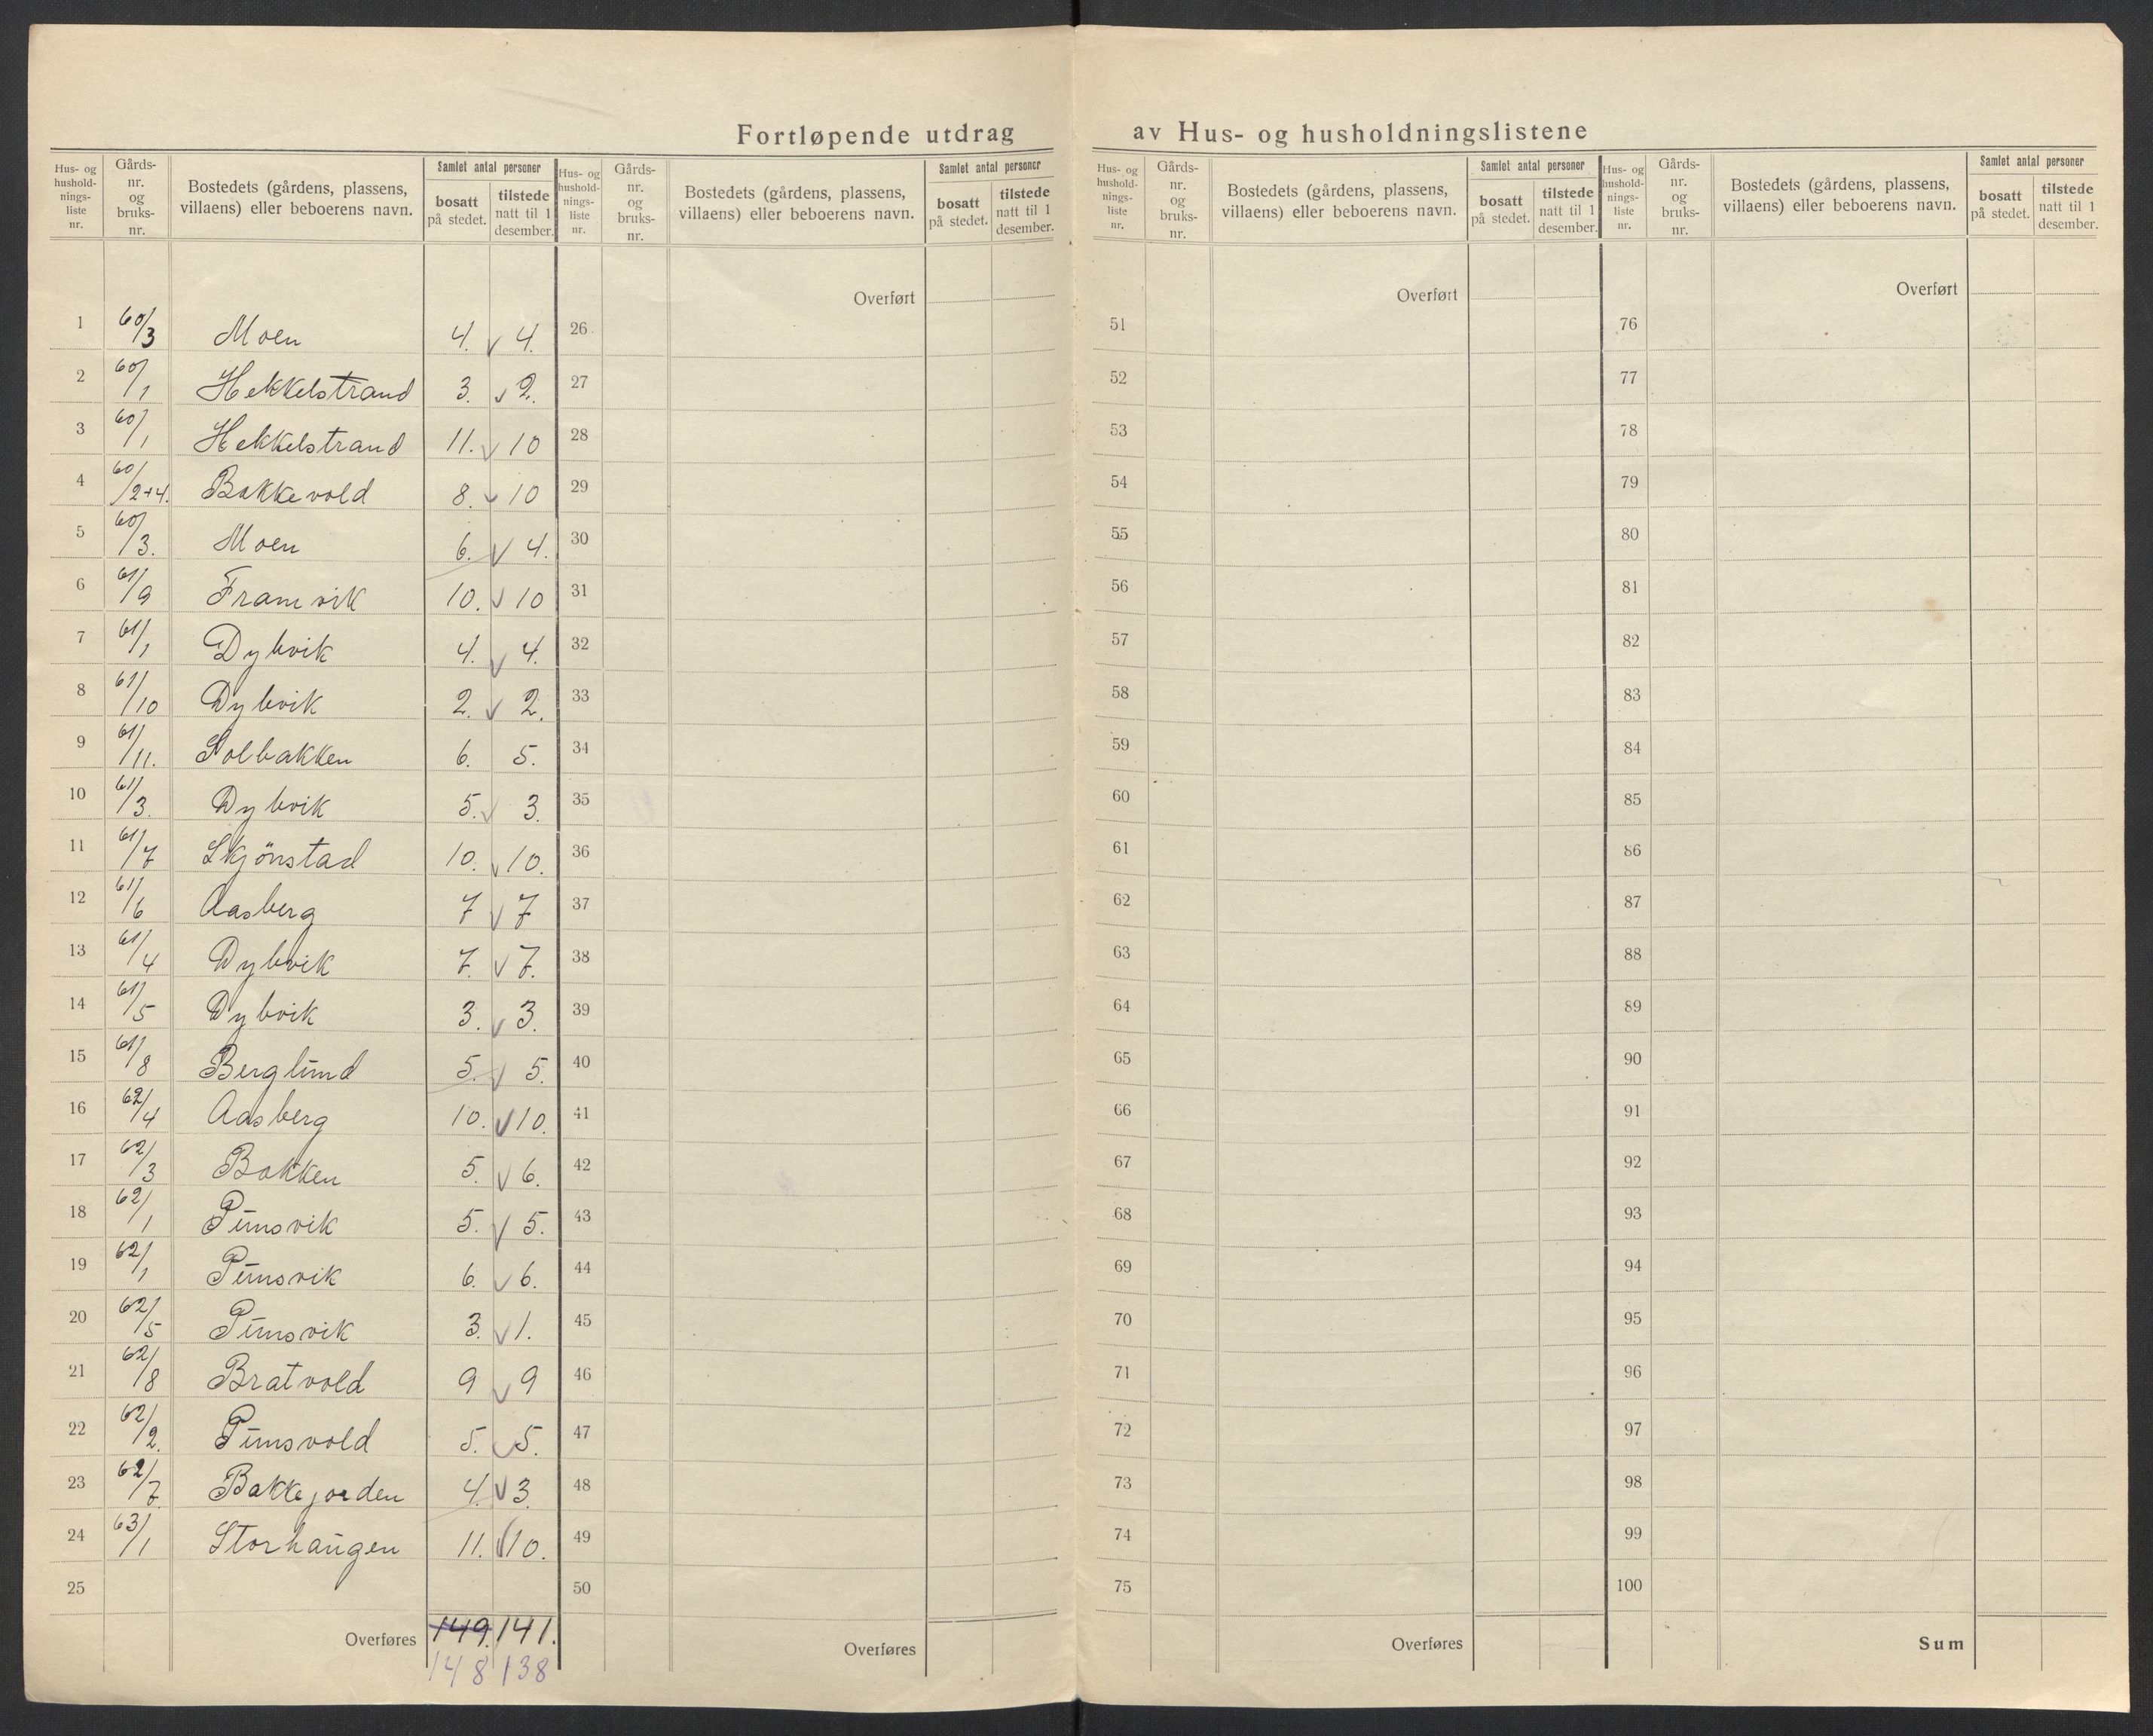 Fortløpende utdrag av Hus- og husholdningslistene
Hus- og hushold- nings- liste nr. | Gårds- nr. og bruks- nr. | Bostedets (gårdens, plassens, villaens) eller beboerens navn. | Samlet antal personer | bosatt på stedet. | tilstede natt til 1 desember.
Hus- og hushold- nings- liste nr. | Gårds- nr. og bruks- nr. | Bostedets (gårdens, plassens, villaens) eller beboerens navn. | Samlet antal personer | bosatt på stedet. | tilstede natt til 1 desember.
Hus- og hushold- nings- liste nr. | Gårds- nr. og bruks- nr. | Bostedets (gårdens, plassens, villaens) eller beboerens navn. | Samlet antal personer | bosatt på stedet. | tilstede natt til 1 desember.
Hus- og hushold- nings- liste nr. | Gårds- nr. og bruks- nr. | Bostedets (gårdens, plassens, villaens) eller beboerens navn. | Samlet antal personer | bosatt på stedet. | tilstede natt til 1 desember.
Overført Overført Overført
1 60/3 Moen 4. v 4. 26 51 76
2 60/1 Hekkelstrand 3. v 2. 27 52 77
3 60/1 Hekkelstrand 11. v 10 28 53 78
4 60/2+4. Bakkevold 8. v 10 29 54 79
5 60/3. Moen 6. v 4. 30 55 80
6 61/9 Framvik 10. v 10 31 56 81
7 61/1 Dybvik 4. v 4. 32 57 82
8 61/10 Dybvik 2. v 2. 33 58 83
9 61/11. Solbakken 6. 5. 34 59 84
10 61/3. Dybvik 5. v 3. 35 60 85
11 61/7 Skjönstad 10. v 10. 36 61 86
12 61/6 Aasberg 7 v 7 37 62 87
13 61/4 Dybvik 7. v 7. 38 63 88
14 61/5 Dybvik 3. v 3. 39 64 89
15 61/8 Berglund 5. v 5. 40 65 90
16 62/4 Aasberg 10. v 10. 41 66 91
17 62/3 Bakken 5. v 6. 42 67 92
18 62/1 Pünsvik 5. v 5. 43 68 93
19 62/1 Pünsvik 6. v 6. 44 69 94
20 62/5 Pünsvik 3. v 1. 45 70 95
21 62/8 Bratvold 9 v 9 46 71 96
22 62/2. Pünsvold 5. v 5. 47 72 97
23 62/7. Bakkejorden 4. v 3. 48 73 98
24 63/1 Storhaugen 11. v 10. 49 74 99
25 50 75 100
Overføres 149. 141. Overføres Overføres Sum
148 138